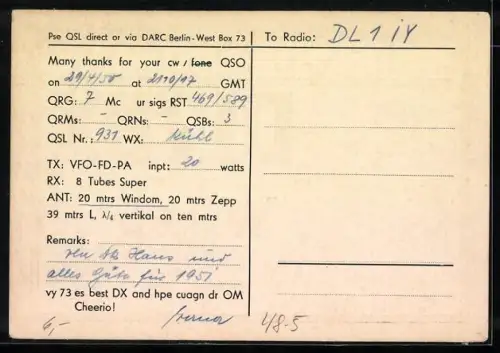 Pse QSL direct or via DARC Berlin-West Box 73
To Radio: DL1IY
Many thanks for your cw / fone QSO
on 29/4/50 at 2130/47 GMT
QRG: 7 Mc ur sigs RST 469/589
QRMs: - QRNs: - QSBs: 3
QSL Nr.: 931 WX: kühl
TX: VFO-FD-PA inpt: 20 watts
RX: 8 Tubes Super
ANT: 20 mtrs Windom, 20 mtrs Zepp
39 mtrs L, λ/4 vertikal on ten mtrs
Remarks:
Hans und
alles Gute für 1951
vy 73 es best DX and hpe cuagn dr OM
Cheerio!
6,-
48-5